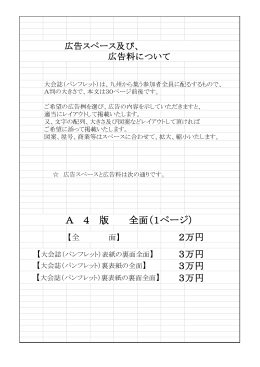 広告スペース及び、
広告料について
大会誌（パンフレット）は、九州から集う参加者全員に配るするもので、
A判の大きさで、本文は30ページ前後です。
ご希望の広告例を選び、広告の内容を示していただきますと、
適当にレイアウトして掲載いたします。
又、文字の配列、大きさ及び図案などレイアウトして頂ければ
ご希望に添って掲載いたします。
図案、屋号、商業等はスペースに合わせて、拡大、縮小いたします。
☆ 広告スペースと広告料は次の通りです。
A 4 版 全面（1ページ）
【全 面】 2万円
【大会誌（パンフレット）表紙の裏面全面】 3万円
【大会誌（パンフレット）裏表紙の全面】 3万円
【大会誌（パンフレット）裏表紙の裏面全面】 3万円